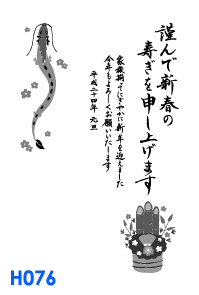 謹んで新春の
寿ぎを申し上げます
家族揃ってにぎやかに新年を迎えました
今年もよろしくお願いいたします
平成二十四年 元旦
H076